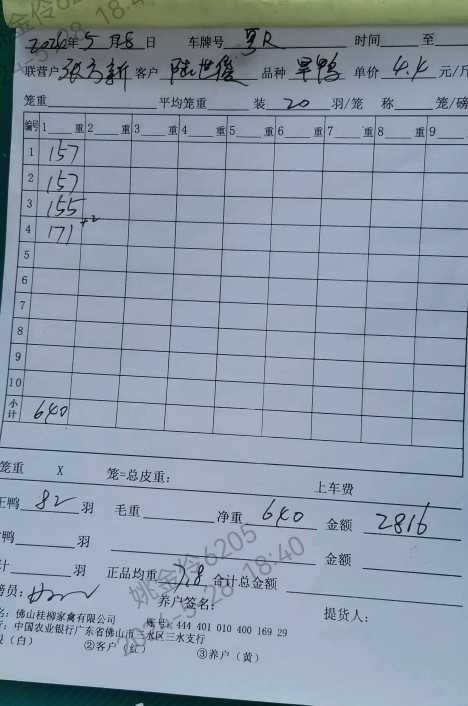 2026年5月8日 车牌号 时间 至
联营户 张方新 客户 陆世俊 品种 旱鸭 单价 4.4 元/斤
笼重 平均笼重 装 20 羽/笼 称 笼/磅
编号 1 重 2 重 3 重 4 重 5 重 6 重 7 重 8 重 9
1 157
2 157
3 155
4 171 +2
5
6
7
8
9
10
小计 640
笼重 X 笼=总皮重: 上车费
正鸭 82 羽 毛重 净重 640 金额 2816
鸭 羽 金额
计 羽 正品均重 7.8 合计总金额
磅员: 养户签名: 提货人:
名: 佛山桂柳家禽有限公司 账号: 444 401 010 400 169 29
行: 中国农业银行广东省佛山市三水区三水支行
(白) ②客户(红) ③养户(黄)
姚金伶6205
18:40